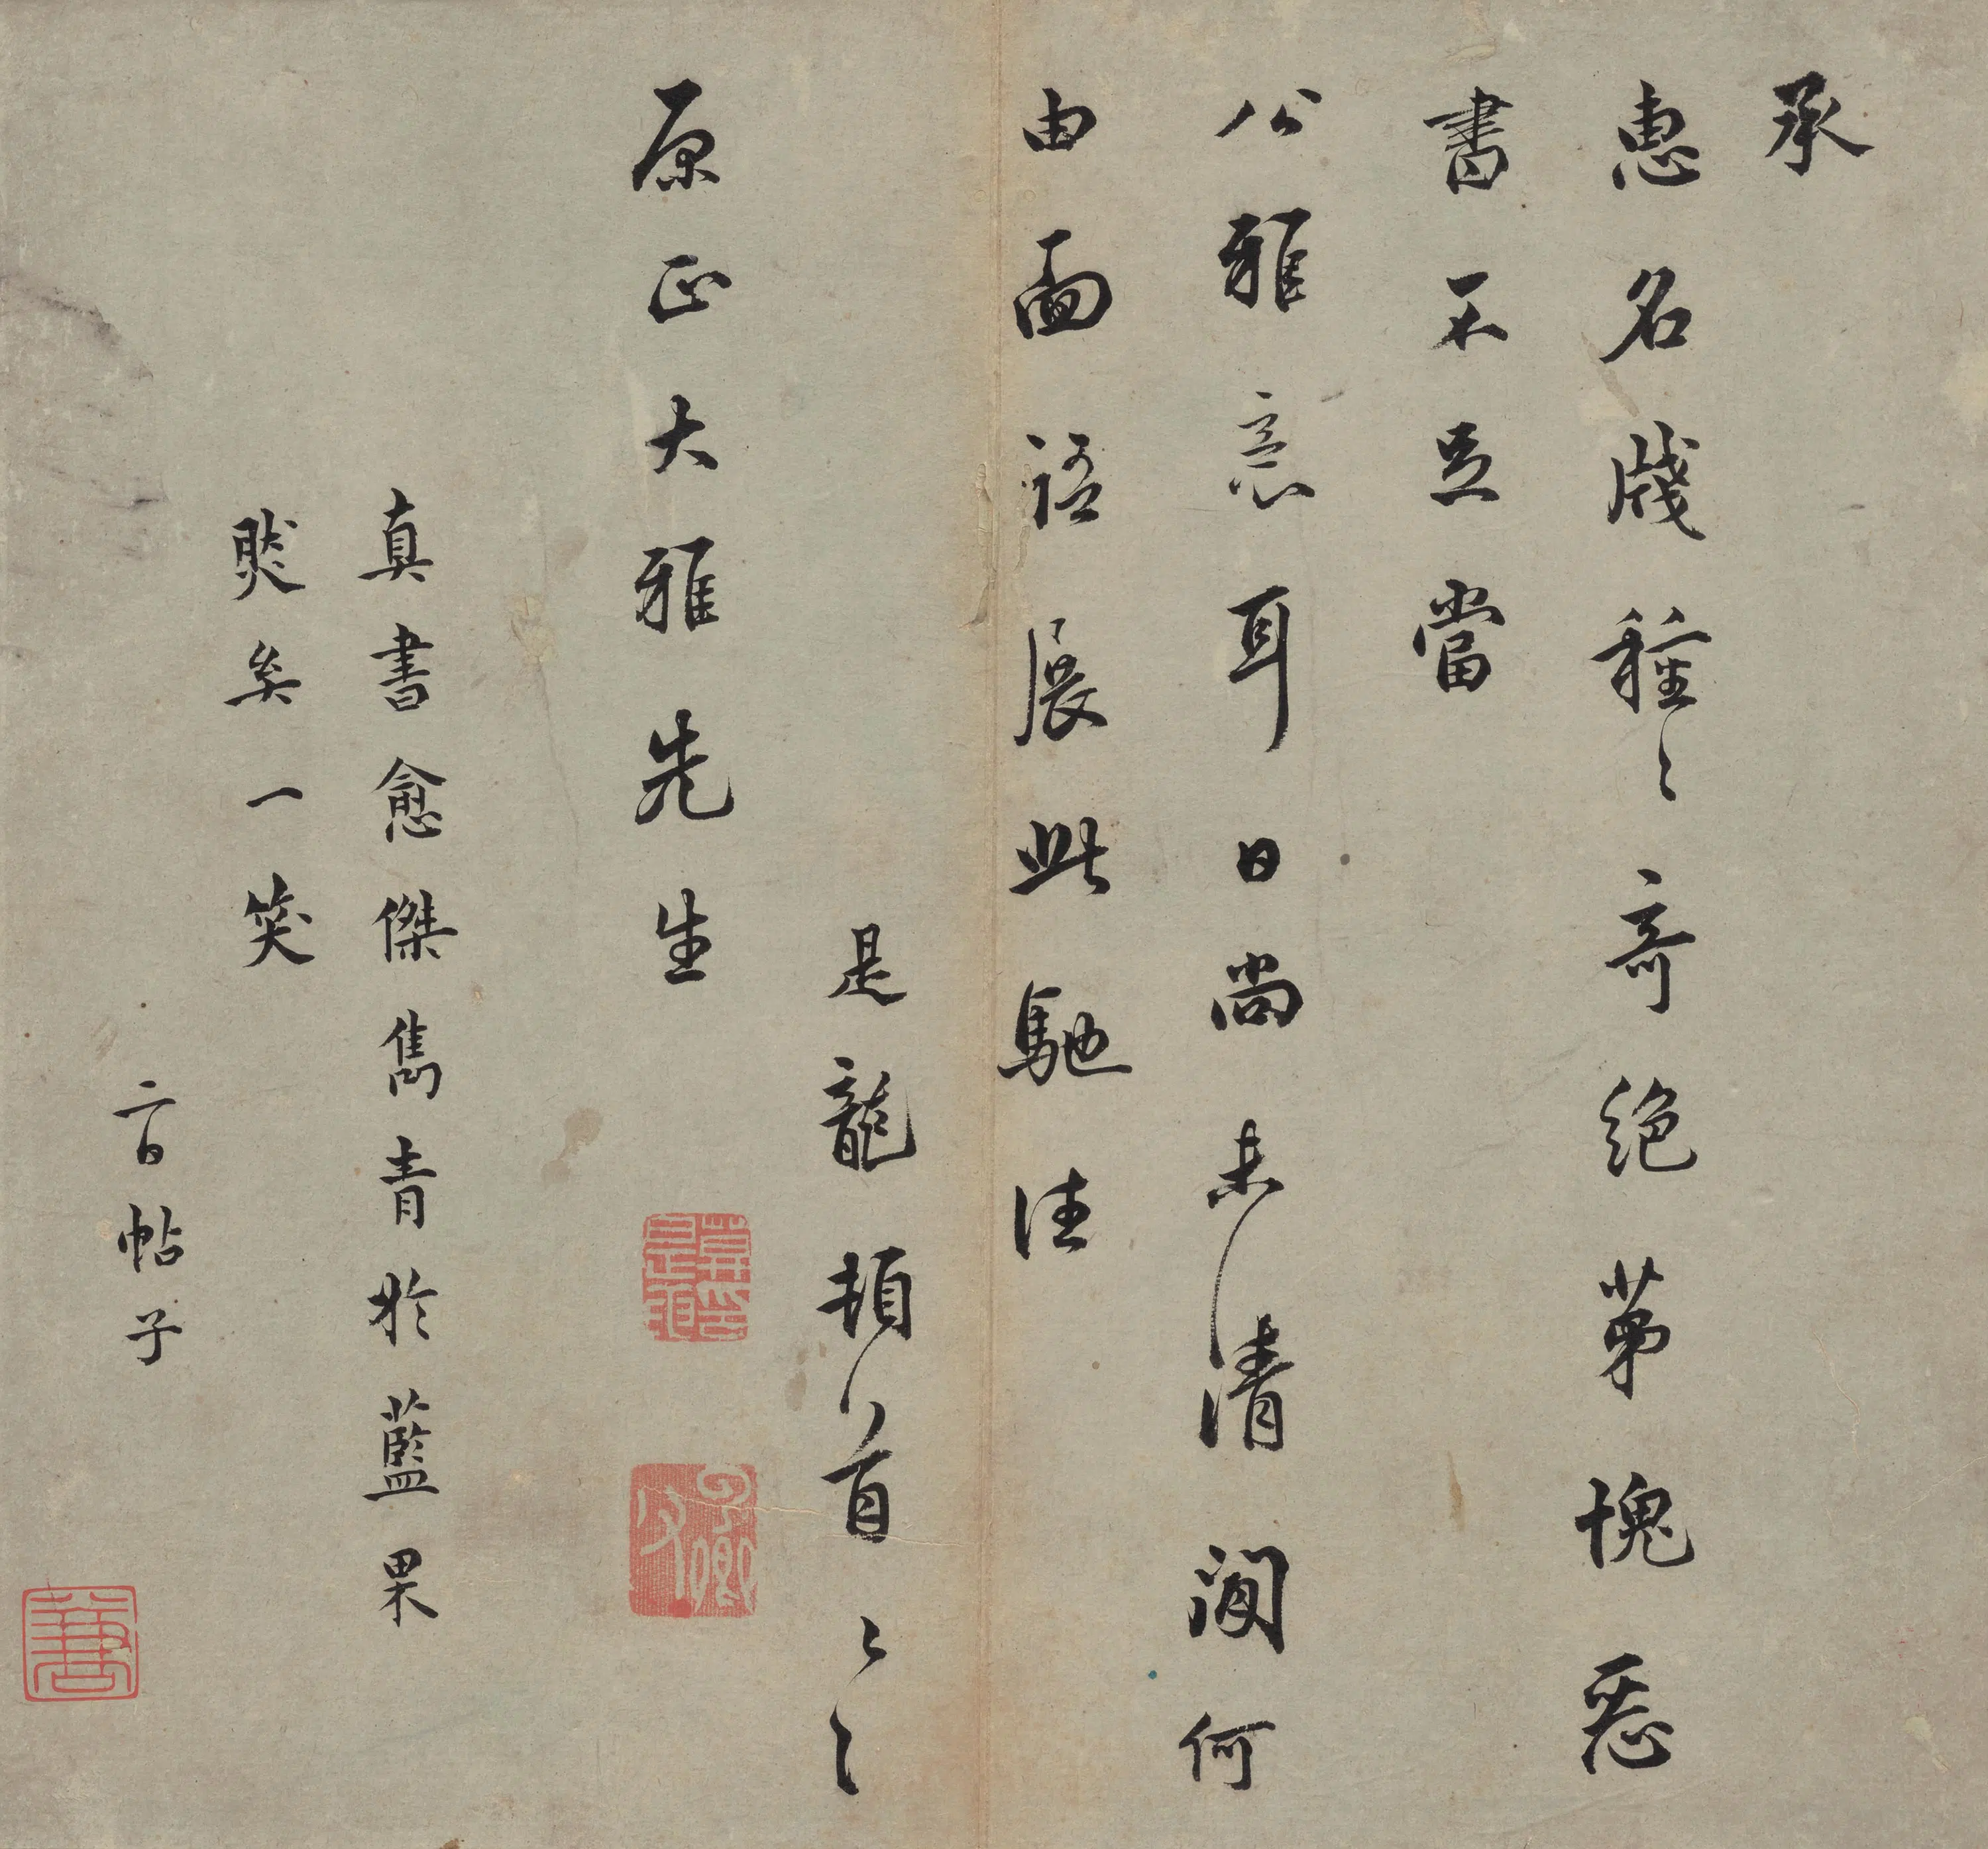 承
惠名牋種〻奇絶第愧惡
書不足當
公雅意耳日尚未清閒何
由面語展此馳往
是龍頓首〻〻
原正大雅先生
真書愈傑雋青於藍果
然矣一笑
言帖子